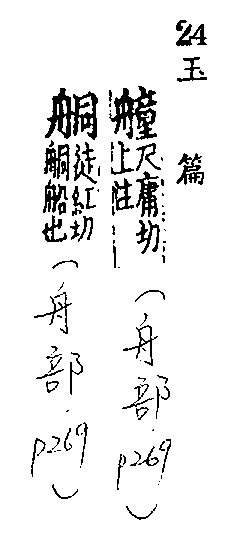 24
玉篇
艟尺庸切
上注
(舟部.p269)
舸徒紅切
舸船也
(舟部.p269)